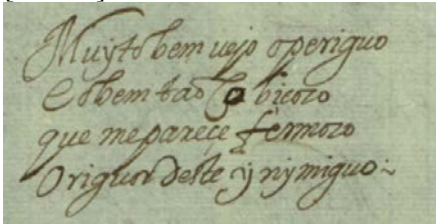 Muyto bem uejo o periguo
E o bem tao
que me pareçe fermozo
O riguor deste ynymiguo